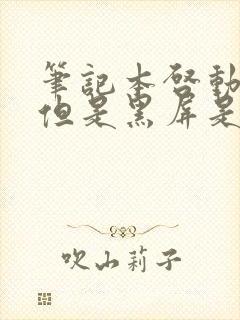 筆記本啓動
但是黑屏是
吹山莉子